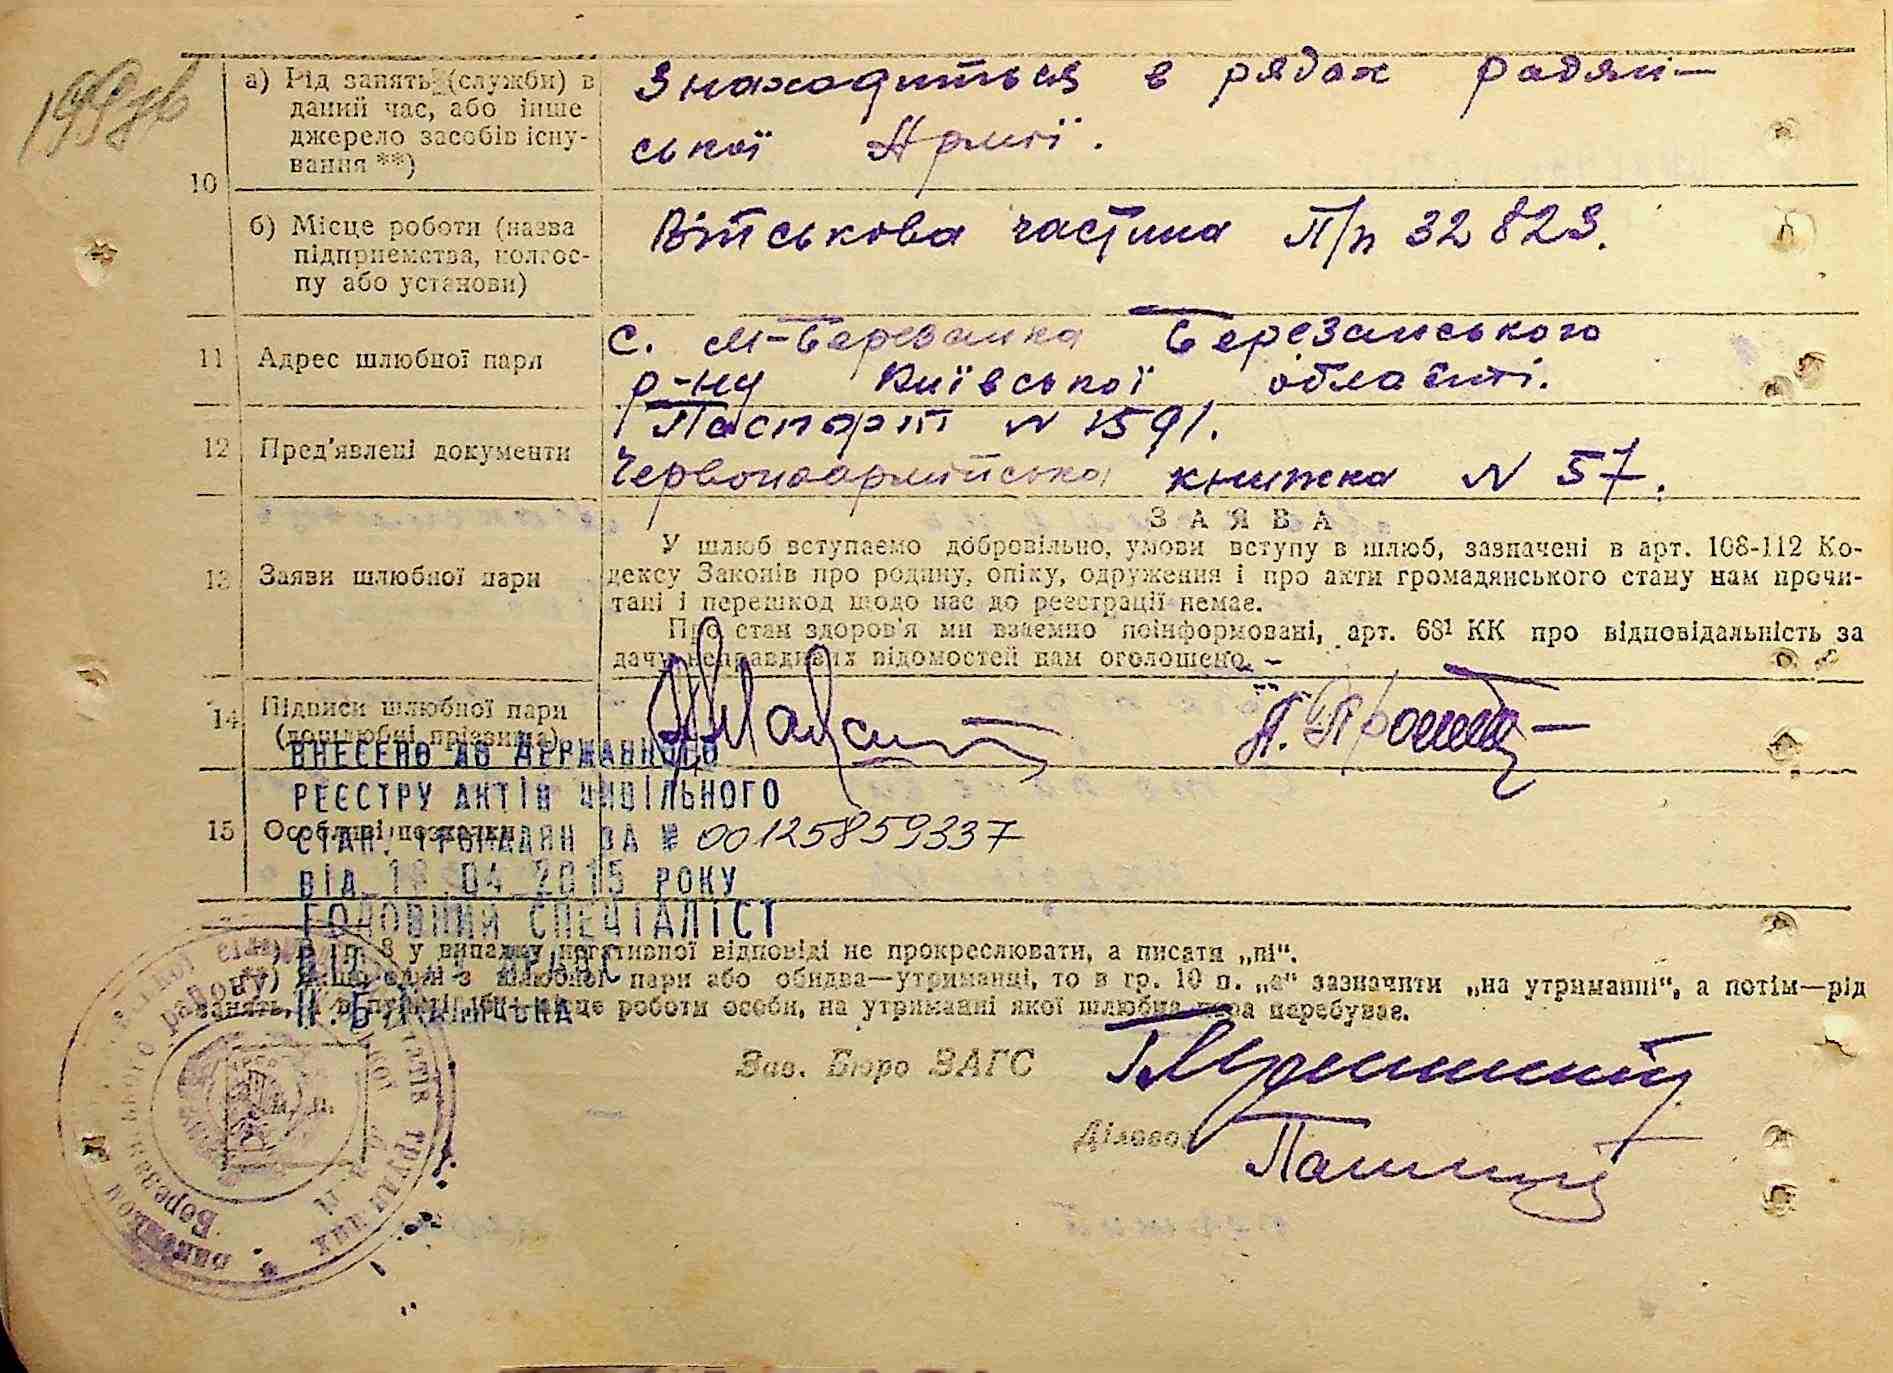 10
а) Рід занять (служби) в
даний час, або інше
джерело засобів існу-
вання **)
Знаходиться в рядах радян-
ської Армії.
б) Місце роботи (назва
підприємства, колгос-
пу або установи)
Військова частина П/п 32823.
11 Адрес шлюбної пари
с. М-Березанка Березанського
р-ну Київської області.
12 Пред'явлені документи
Паспорт N 1591.
Червоноармійська книжка N 57.
13 Заяви шлюбної пари
ЗАЯВА
У шлюб вступаємо добровільно, умови вступу в шлюб, зазначені в арт. 108-112 Ко-
дексу Законів про родину, опіку, одруження і про акти громадянського стану нам прочи-
тані і перешкод щодо нас до реєстрації немає.
Про стан здоров'я ми взаємно поінформовані, арт. 68¹ КК про відповідальність за
дачу неправдивих відомостей нам оголошено.
14 Підписи шлюбної пари
(дошлюбні прізвища)
15 Особливі познатки
ВНЕСЕНО ДО ДЕРЖАВНОГО
РЕЄСТРУ АКТІВ ЦИВІЛЬНОГО
СТАНУ ГРОМАДЯН ЗА № 00125859337
ВІД 04 2015 РОКУ
ГОЛОВНИЙ СПЕЦІАЛІСТ
*) В гр. 8 у випадку негативної відповіді не прокреслювати, а писати „ні“.
**) Якщо один з шлюбної пари або обидва—утриманці, то в гр. 10 п. „а“ зазначити „на утриманні“, а потім—рід
занять, а в пункті „б“ місце роботи особи, на утриманні якої шлюбна пара перебуває.
Зав. Бюро ЗАГС
Діловод
М. П.